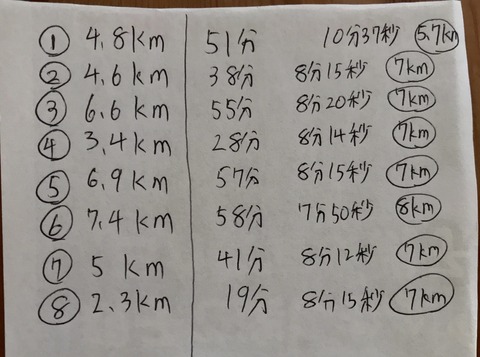 ① 4.8km 51分 10分37秒 5.7km
② 4.6km 38分 8分15秒 7km
③ 6.6km 55分 8分20秒 7km
④ 3.4km 28分 8分14秒 7km
⑤ 6.9km 57分 8分15秒 7km
⑥ 7.4km 58分 7分50秒 8km
⑦ 5km 41分 8分12秒 7km
⑧ 2.3km 19分 8分15秒 7km